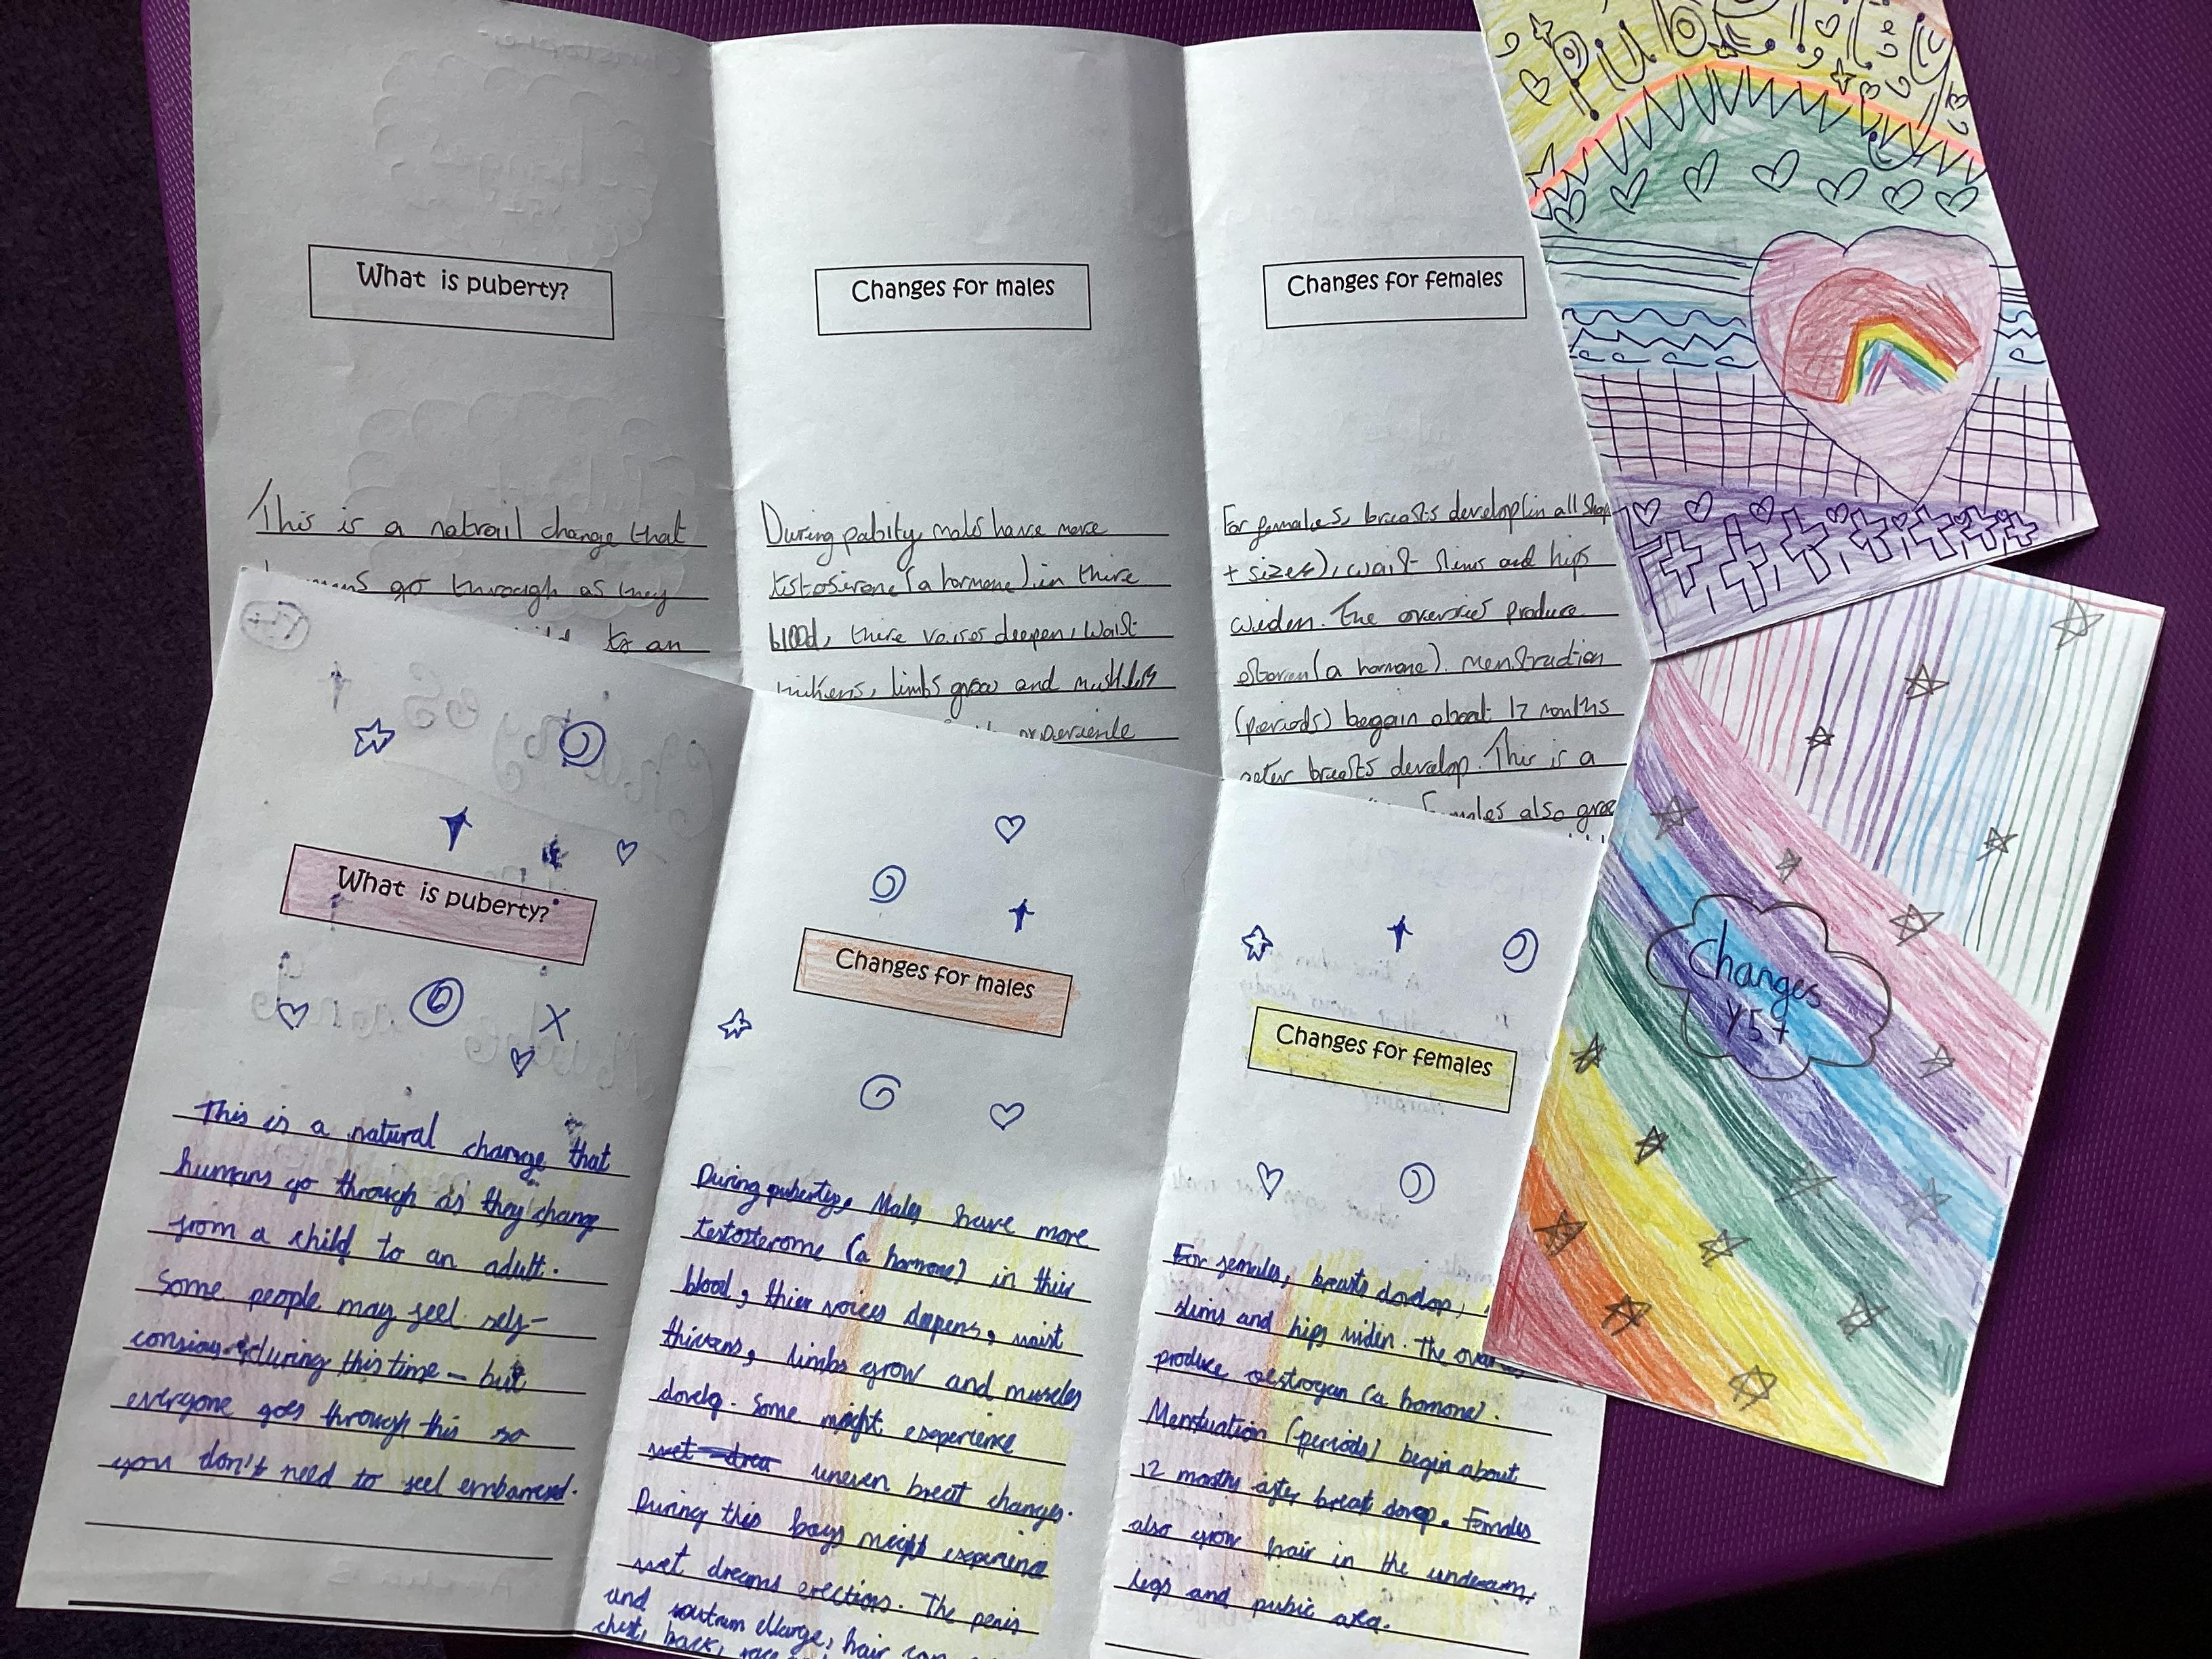 What is puberty?
This is a natrail change that
go through as they
to an
Changes for males
During pabity, mals have more
testosirone (a hormone) in there
blood, there voises deepen, waist
thikens, limbs grow and
Changes for females
For females, breasts develop (in all
+ sizes), waist slims and hips
widen. The overies produce
(a hormone). menstruation
(periods) begain about 12 months
after breasts develop. This is a
also grow
Puberty
What is puberty?
This is a natural change that
humans go through as they change
from a child to an adult.
Some people may feel self-
during this time - but
everyone goes through this so
you don't need to feel embarresed.
Changes for males
During puberty, Males have more
testosterome (a hormone) in thier
blood, thier voices deepens, waist
thickens, limbs grow and muscles
devolp. Some might experience
uneven breast changes.
During this boys might experience
wet dreams erections. The penis
and
chest, back,
Changes for females
For females, breasts
slims and hips widen. The
produce oestrogan (a homone).
Menstuation (periods) begin about
12 months after Females
also grow hair in the underarm,
legs and pubic area.
Changes
Y5 +